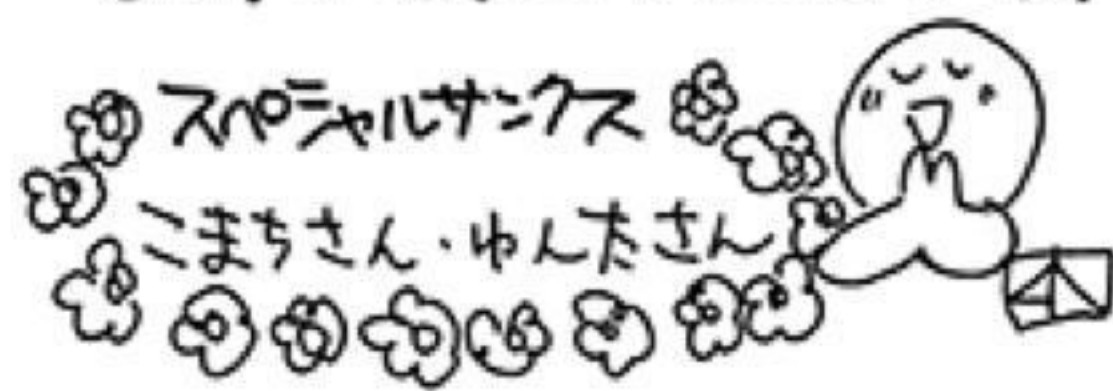 スペシャルサンクス
こまちさん・ゆんたさん